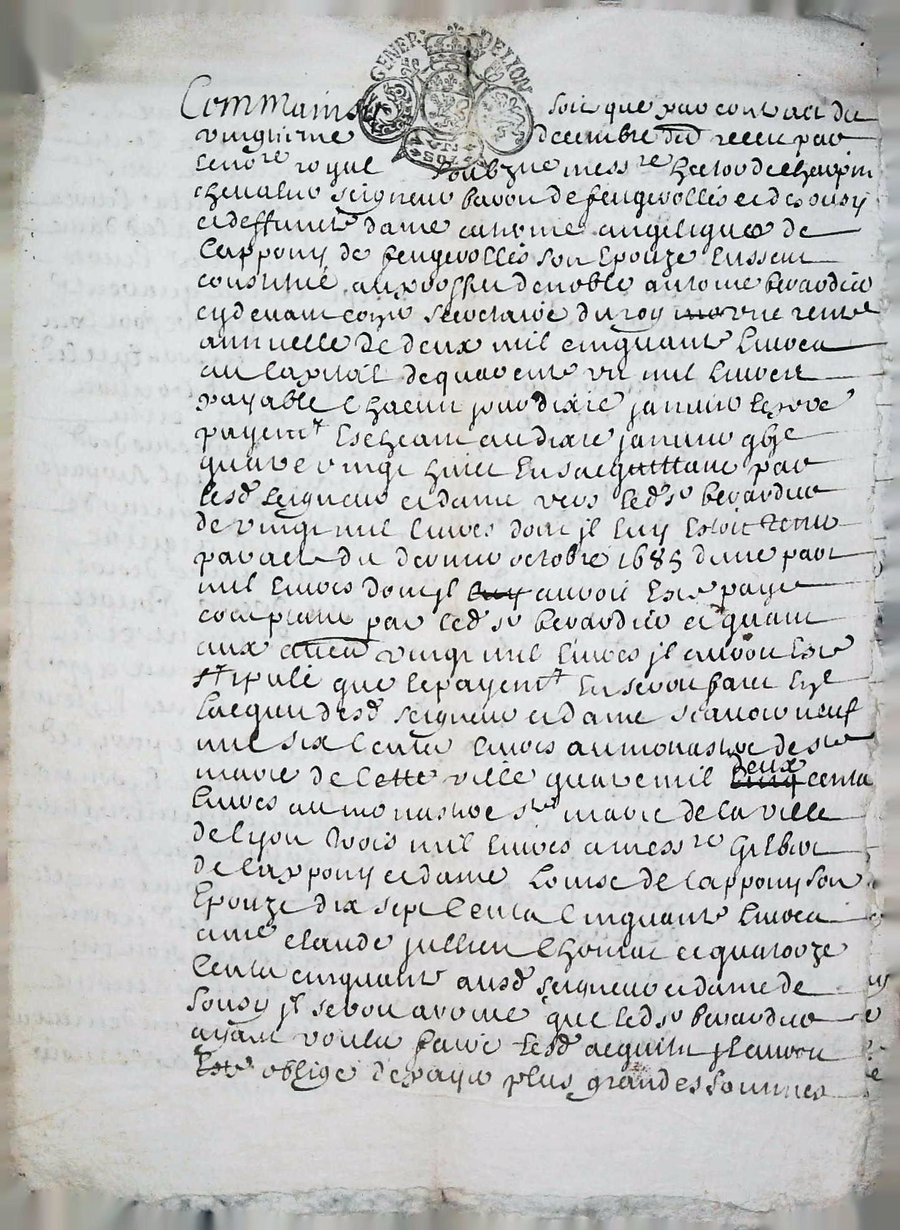 GENER. DE LYON
Comme ainsy soit que par contract du
vingtieme decembre dud receu par
le no.re royal soubz.ne mess.re hector de charpin
chevalier seigneur baron de feugerolles et de sousy
et deffuncte dame catherine angelique de
Cappony de feugerolles son Epouze eussent
constitué au proffit de noble antoine berardier
cy devant secretaire du roy une rente
annuelle de deux mil cinquante livres
au capital de quarente un mil livres
payable chacun jour dixie janvier le prer
payem.t escheant au dixie janvier
quatre vingt huict en sacquittant par
lesd. seigneur et dame vers led. s.r berardier
de vingt mil livres dont il luy estoit tenu
par acte du dernier octobre 1685 dune part
mil livres dont il avoit este payé
comptant par led. s.r berardier et quant
aux vingt mil livres il auroit este
stipulé que le payem.t en seroit faict en
lacquit desd. seigneur et dame scavoir neuf
mil six cents livres au monastere de s.te
marie de cette ville quatre mil deux cents
livres au monastere s.te marie de la ville
de lyon trois mil livres a mess.re Gilbert
de cappony et dame Louise de cappony son
Epouze dix sept cents cinquante livres
a me claude jullien chomat et quatorze
cents cinquante ausd. seigneur et dame de
Sousy il seroit arrivé que led. s.r berardier
ayant voulu faire lesd. acquits il auroit
este obligé de payer plus grandes sommes